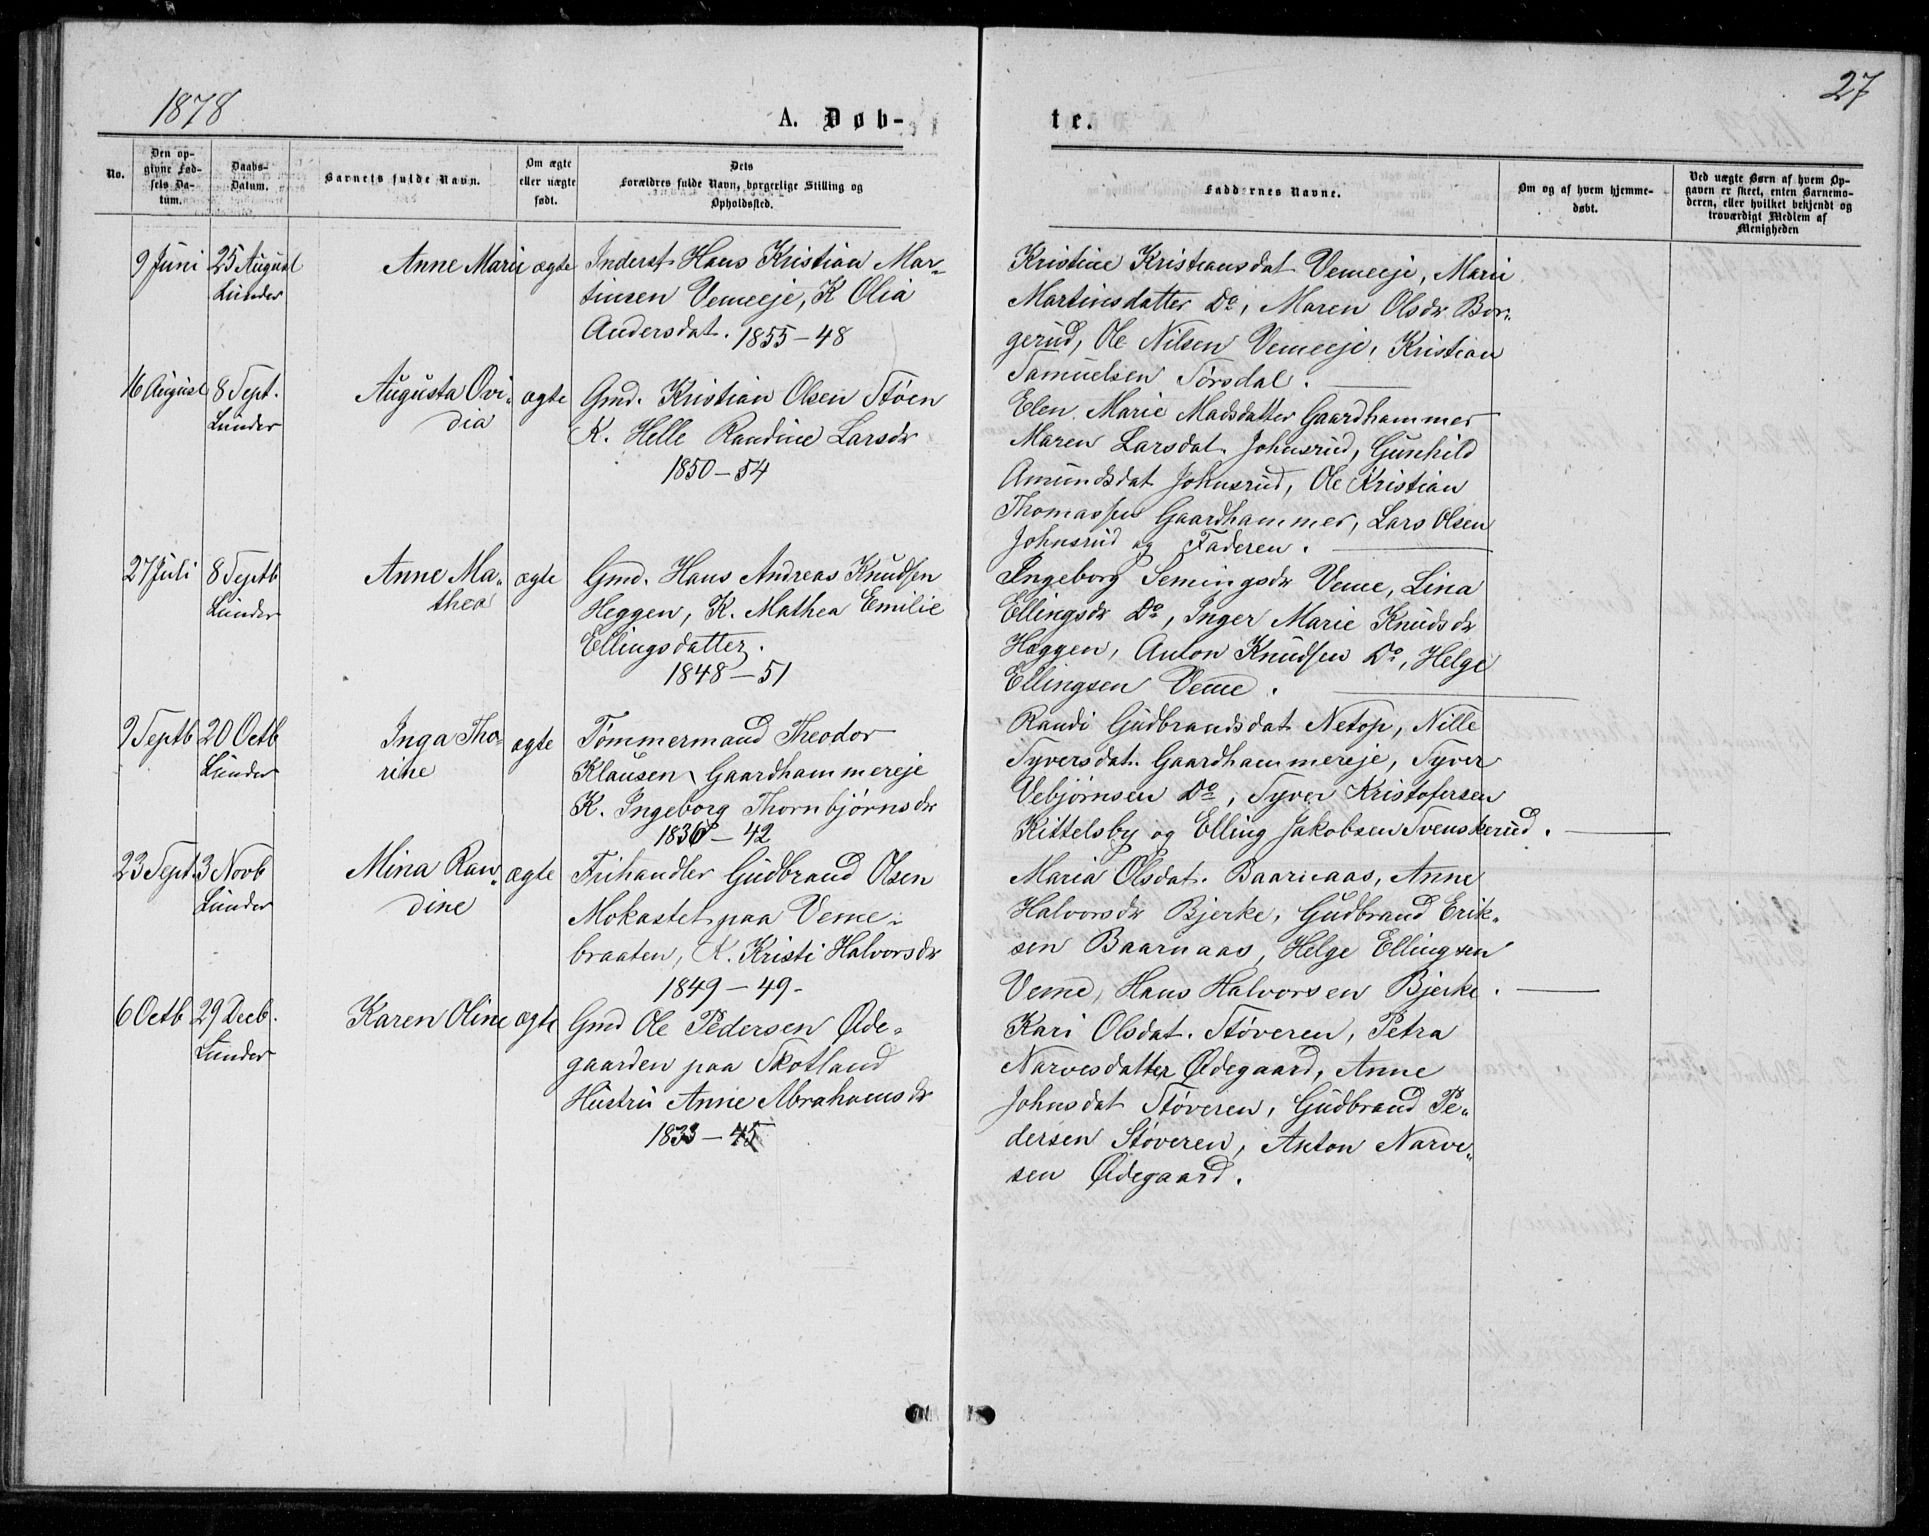 1878
A. Døb-
te.
27
No.
Den op-
givne Fød-
sels Da-
tum.
Daabs-
Datum.
Barnets fulde Navn.
Om ægte
eller uægte
født.
Dets
Forældres fulde Navn, borgerlige Stilling og
Opholdssted.
Faddernes Navne.
Om og af hvem hjemme-
døbt.
Ved uægte Børn af hvem Op-
gaven er skeet, enten Barnemo-
deren, eller hvilket bekjendt og
troværdigt Medlem af
Menigheden
9 Juni
25 August
Lunder
Anne Marie
ægte
Inderst Hans Kristian Mar-
tinsen Vemeeje, K Olia
Andersdat. 1855-48
Kristine Kristiansdat Vemeeje, Marie
Martinsdatter Do, Maren Olsdr Bor-
gerud, Ole Nilsen Vemeeje, Kristian
Samuelsen Torsdal.
16 August
8 Sept.
Lunder
Augusta Ovi-
dia
ægte
Gmd. Kristian Olsen Støen
K. Helle Randine Larsdr
1850-54
Elen Marie Madsdatter Gaardhammer
Maren Larsdat. Johnsrud, Gunhild
Amundsdat Johnsrud, Ole Kristian
Thomassen Gaardhammer, Lars Olsen
Johnsrud og Faderen.
27 Juli
8 Septb
Lunder
Anne Ma-
thea
ægte
Gmd. Hans Andreas Knudsen
Heggen, K. Mathea Emilie
Ellingsdatter.
1848-51
Ingeborg Semingsdr Veme, Lina
Ellingsdr Do, Inger Marie Knudsdr
Heggen, Anton Knudsen Do, Helge
Ellingsen Veme.
9 Septb
20 Octb
Lunder
Inga Tho-
rine
ægte
Tømmermand Theodor
Klausen Gaardhammereje
K. Ingeborg Thornbjørnsdr
1836-42
Randi Gudbrandsdat Netop, Nille
Syversdat. Gaardhammereje, Syver
Vebjørnsen Do, Syver Kristofersen
Kittelsby og Elling Jakobsen Svenskerud.
23 Sept
3 Novb
Lunder
Mina Ran-
dine
ægte
Frihandler Gudbrand Olsen
Mokastet paa Veme-
braaten, K. Kristi Halvorsdr
1849-49-
Maria Olsdat. Baarnaas, Anne
Halvorsdr Bjerke, Gudbrand Erik-
sen Baarnaas, Helge Ellingsen
Veme, Hans Halvorsen Bjerke.
6 Octb
29 Decb.
Lunder
Karen Oline
ægte
Gmd Ole Pedersen Øde-
gaarden paa Skotland
Hustru Anne Abrahamsdr
1833-45
Kari Olsdat. Støveren, Petra
Narvesdatter Ødegaard, Anne
Johnsdat Støveren, Gudbrand Pe-
dersen Støveren, Anton Narve-
sen Ødegaard.